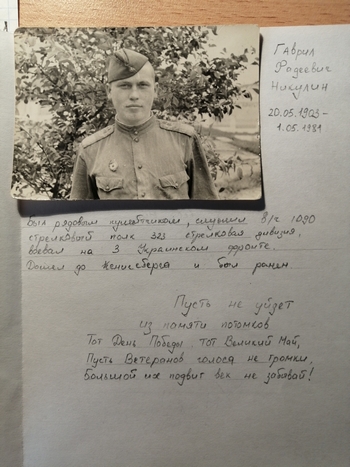 Гаврил
Фадеевич
Никулин
20.05.1903-
1.05.1981
Был рядовым пулемётчиком, служил в/ч 1090
стрелковый полк 323 стрелковая дивизия,
воевал на 3 Украинском фронте.
Дошел до Кенигсберга и был ранен.
Пусть не уйдет
из памяти потомков
Тот День Победы, тот Великий Май,
Пусть Ветеранов голоса не громки,
Большой их подвиг век не забывай!